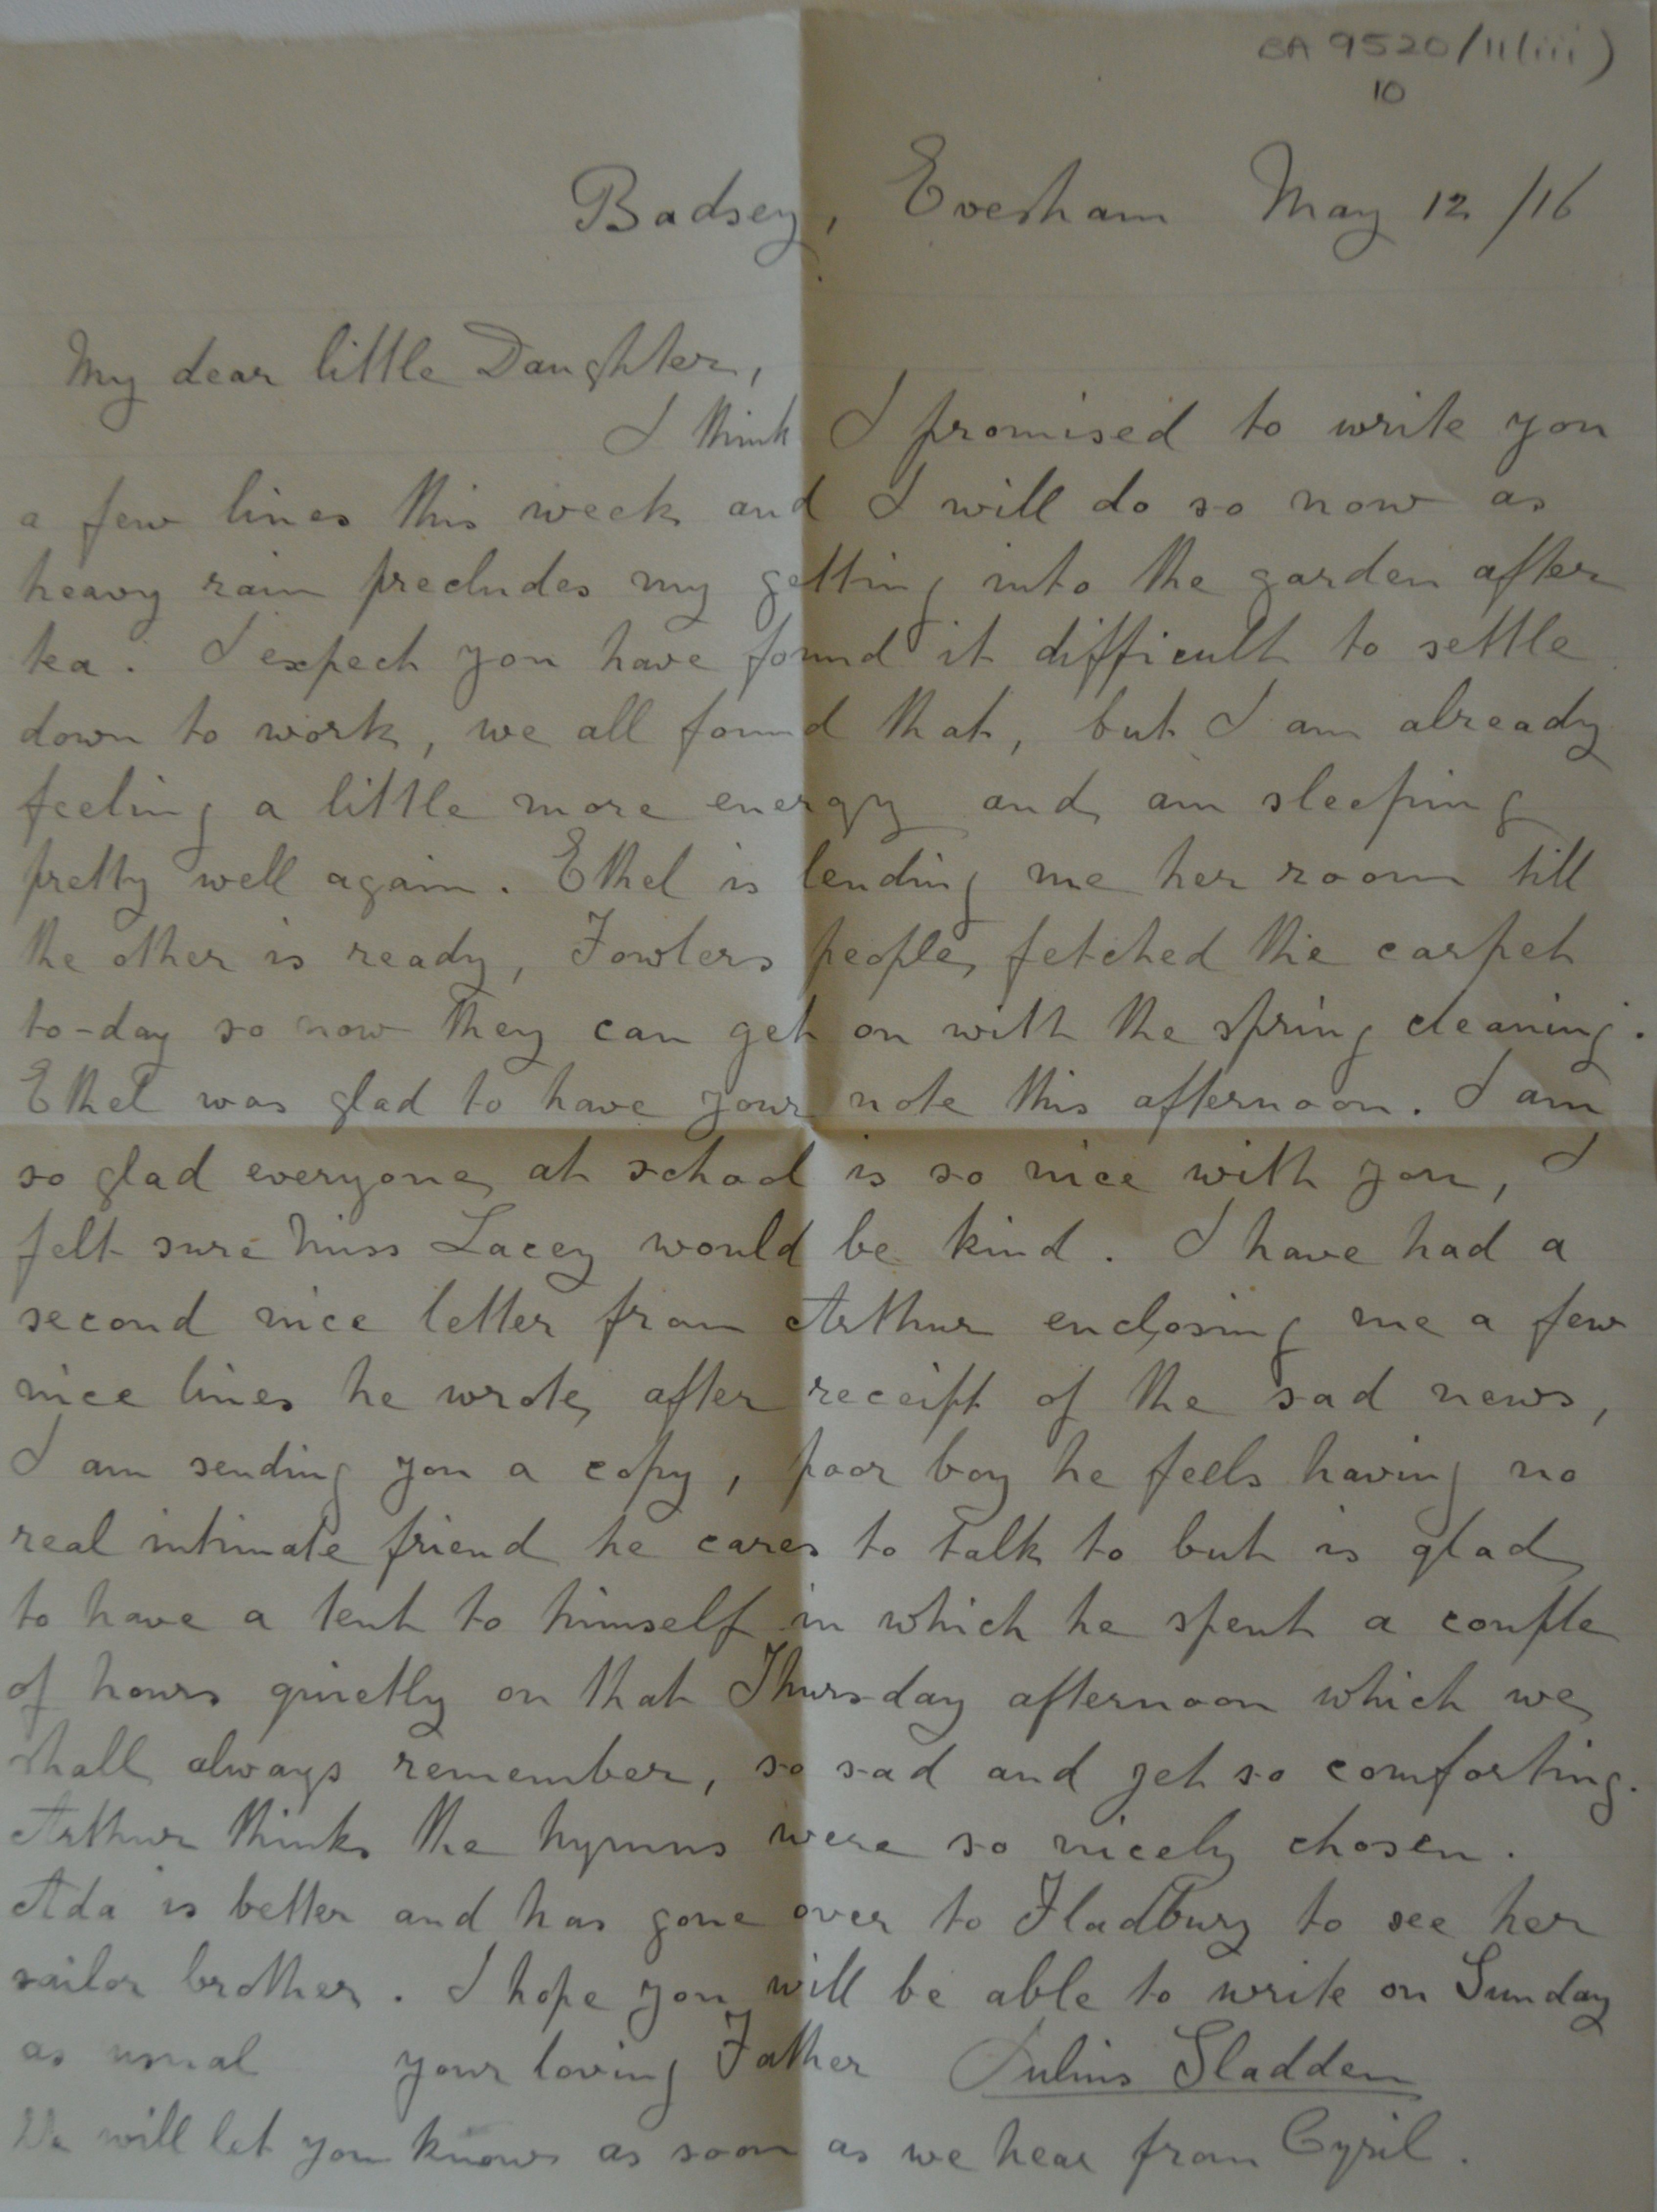 BA 9520/11(iii)
10
Badsey, Evesham May 12/16
My dear little Daughter,
I think I promised to write you
a few lines this week and I will do so now as
heavy rain precludes my getting into the garden after
tea. I expect you have found it difficult to settle
down to work, we all found that, but I am already
feeling a little more energy and am sleeping
pretty well again. Ethel is lending me her room till
the other is ready, Fowlers people fetched the carpet
to-day so now they can get on with the spring cleaning.
Ethel was glad to have your note this afternoon. I am
so glad everyone at school is so nice with you, I
felt sure Miss Lacey would be kind. I have had a
second nice letter from Arthur enclosing me a few
nice lines he wrote after receipt of the sad news,
I am sending you a copy, poor boy he feels having no
real intimate friend he cares to talk to but is glad
to have a tent to himself in which he spent a couple
of hours quietly on that Thursday afternoon which we
shall always remember, so sad and yet so comforting.
Arthur thinks the hymns were so nicely chosen.
Ada is better and has gone over to Fladbury to see her
sailor brother. I hope you will be able to write on Sunday
as usual your loving Father Julius Sladden
We will let you know as soon as we hear from Cyril.